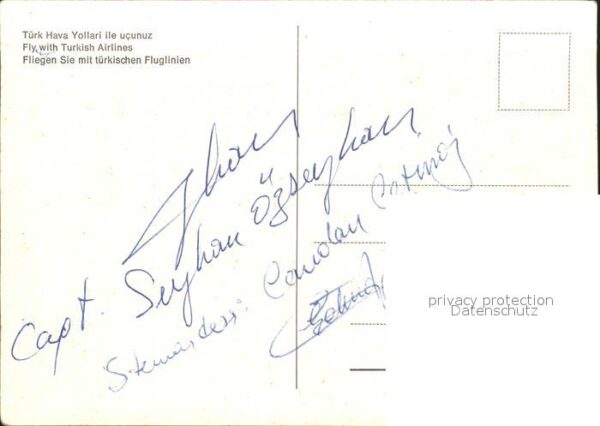 Türk Hava Yollari ile uçunuz
Fly with Turkish Airlines
Fliegen Sie mit türkischen Fluglinien
Capt. Seyhan Özseyhan
Candan
privacy protection
Datenschutz